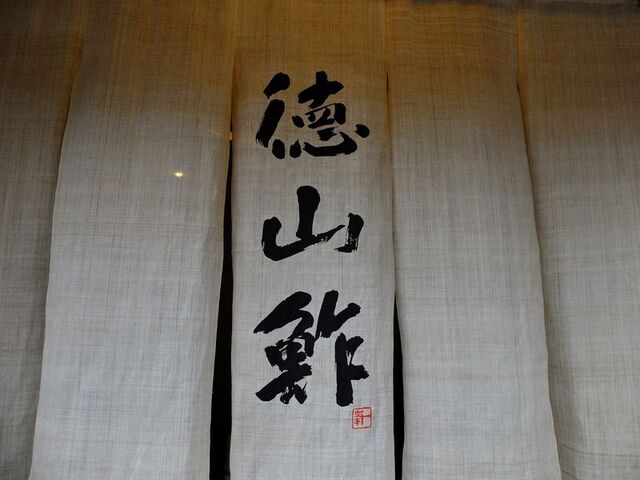 徳山鮓